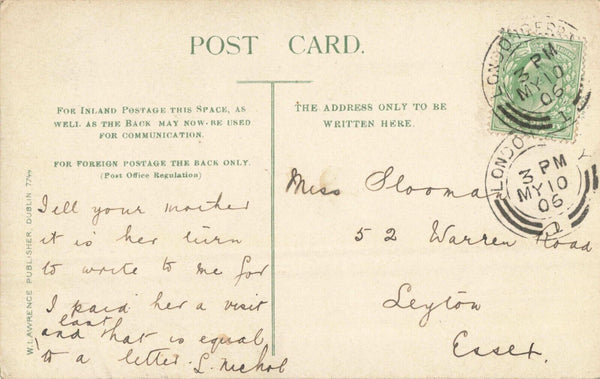 POST CARD.
FOR INLAND POSTAGE THIS SPACE, AS
WELL AS THE BACK MAY NOW BE USED
FOR COMMUNICATION.
FOR FOREIGN POSTAGE THE BACK ONLY.
(Post Office Regulation)
THE ADDRESS ONLY TO BE
WRITTEN HERE.
W. LAWRENCE, PUBLISHER, DUBLIN
Tell your mother
it is her turn
to write to me for
I paid her a visit
last
and that is equal
to a letter. L. Nichol
Miss
52 Warren Road
Leyton
Essex.
LONDONDERRY
3 PM
MY 10
06
1
3 PM
MY 10
06
1